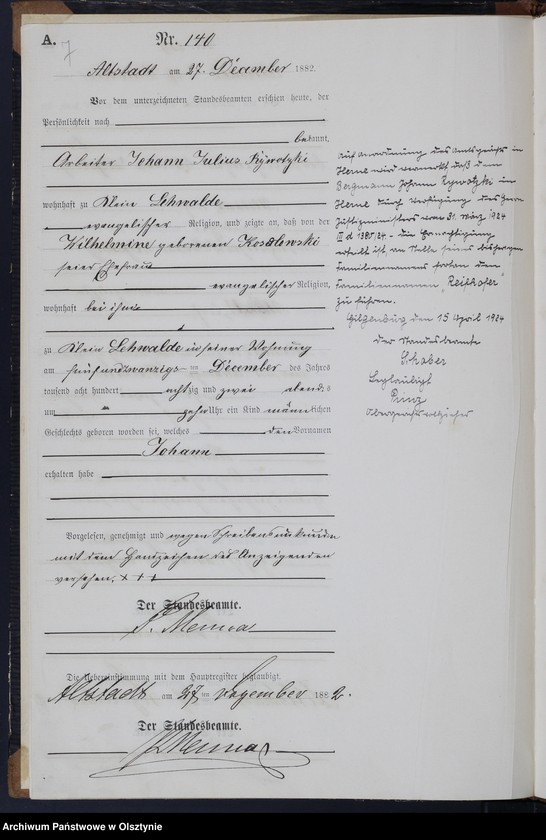 A. 7 Nr. 140
Altstadt am 27. December 1882.
Vor dem unterzeichneten Standesbeamten erschien heute, der
Persönlichkeit nach
bekannt,
Arbeiter Johann Julius Rywotzki
wohnhaft zu Klein Lehwalde
evangelischer Religion, und zeigte an, daß von der
Wilhelmine geborenen Koslowski
seiner Ehefrau
evangelischer Religion,
wohnhaft bei ihm
zu Klein Lehwalde in seiner Wohnung
am fünfundzwanzigsten December des Jahres
tausend acht hundert achtzig und zwei abends
um zehn Uhr ein Kind männlichen
Geschlechts geboren worden sei, welches den Vornamen
Johann
erhalten habe
Vorgelesen, genehmigt und wegen Schreibensunkunde
mit dem Handzeichen des Anzeigenden
versehen. + + +
Der Standesbeamte.
Menna
Die Uebereinstimmung mit dem Hauptregister beglaubigt.
Altstadt am 27ten Dezember 1882.
Der Standesbeamte.
Menna
Auf Anordnung des Amtsgerichts in
Herne wird vermerkt daß dem
Bergmann Johann Rywotzki in
Herne durch Verfügung des Herrn
Justizministers vom 31. März 1924
die Ermächtigung
erteilt ist, an Stelle seines bisherigen
Familiennamens fortan den
Familiennamen "Reifhofer"
zu führen.
Gilgenburg den 15 April 1924
Der Standesbeamte
Beglaubigt
Obergerichtssekretär
Archiwum Państwowe w Olsztynie